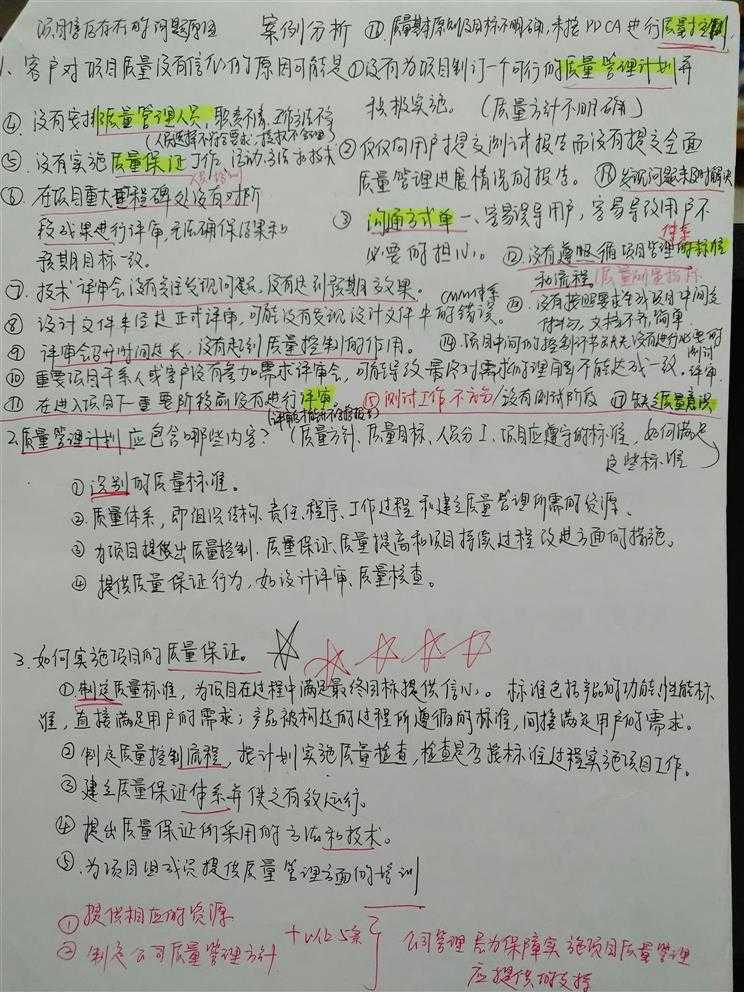 项目管理存在的问题原因 案例分析 ⑪ 质量基本原则及目标不明确,未按PDCA进行质量控制
1、客户对项目质量没有信心的原因可能是①没有为项目制订一个可行的质量管理计划并
积极实施。(质量方针不明确)
④ 没有安排质量管理人员,职责不清,工作方法不当
(人员选择不符合要求,授权不合理)
② 仅仅向用户提交测试报告而没有提交全面
⑤ 没有实施质量保证工作,活动、方法和技术
质量管理进展情况的报告。⑯发现问题未及时解决
⑥ 在项目重大里程碑处没有对阶
③ 沟通方式单一、容易误导用户,容易导致用户不
段成果进行评审,无法确保结果和
必要的担心。⑫ 没有遵照循项目管理的标准
体系
预期目标一致。
和流程。
⑦ 技术评审会没有关注发现问题,没有达到预期的效果。
⑬ 没有按照需求完成项目中间交
付物,文档不齐,简单
⑧ 设计文件未经过正式评审,可能没有发现设计文件中的错误。
⑨ 评审会召开时间过长,没有起到质量控制的作用。
⑭ 项目中间的控制环节缺失没有进行必要的
测试
评审
⑩ 重要项目干系人或客户没有参加需求评审会,可能导致最终对需求的理解不能达成一致。
⑪ 在进入项目下一重要阶段前没有进行评审 ⑮测试工作不充分/没有测试阶段 ⑰缺乏质量意识
2、质量管理计划应包含哪些内容?(质量方针、质量目标、人员分工、项目应遵守的标准,如何满足
这些标准)
① 识别的质量标准。
② 质量体系,即组织结构、责任、程序、工作过程和建立质量管理所需的资源、
③ 为项目提供出质量控制、质量保证、质量提高和项目持续过程改进方面的措施。
④ 提供质量保证行为,如设计评审、质量核查。
3、如何实施项目的质量保证。
①.制定质量标准,为项目在过程中满足最终目标提供信心。标准包括产品的功能、性能标
准,直接满足用户的需求;产品被构造的过程所遵循的标准,间接满足用户的需求。
② 制定质量控制流程,按计划实施质量检查,检查是否按标准过程实施项目工作。
③ 建立质量保证体系并使之有效运行。
④ 提出质量保证所采用的方法和技术。
⑤.为项目组成员提供质量管理方面的培训
① 提供相应的资源
② 制定公司质量管理方针
+以上5条
公司管理层为保障实施项目质量管理
应提供的支持